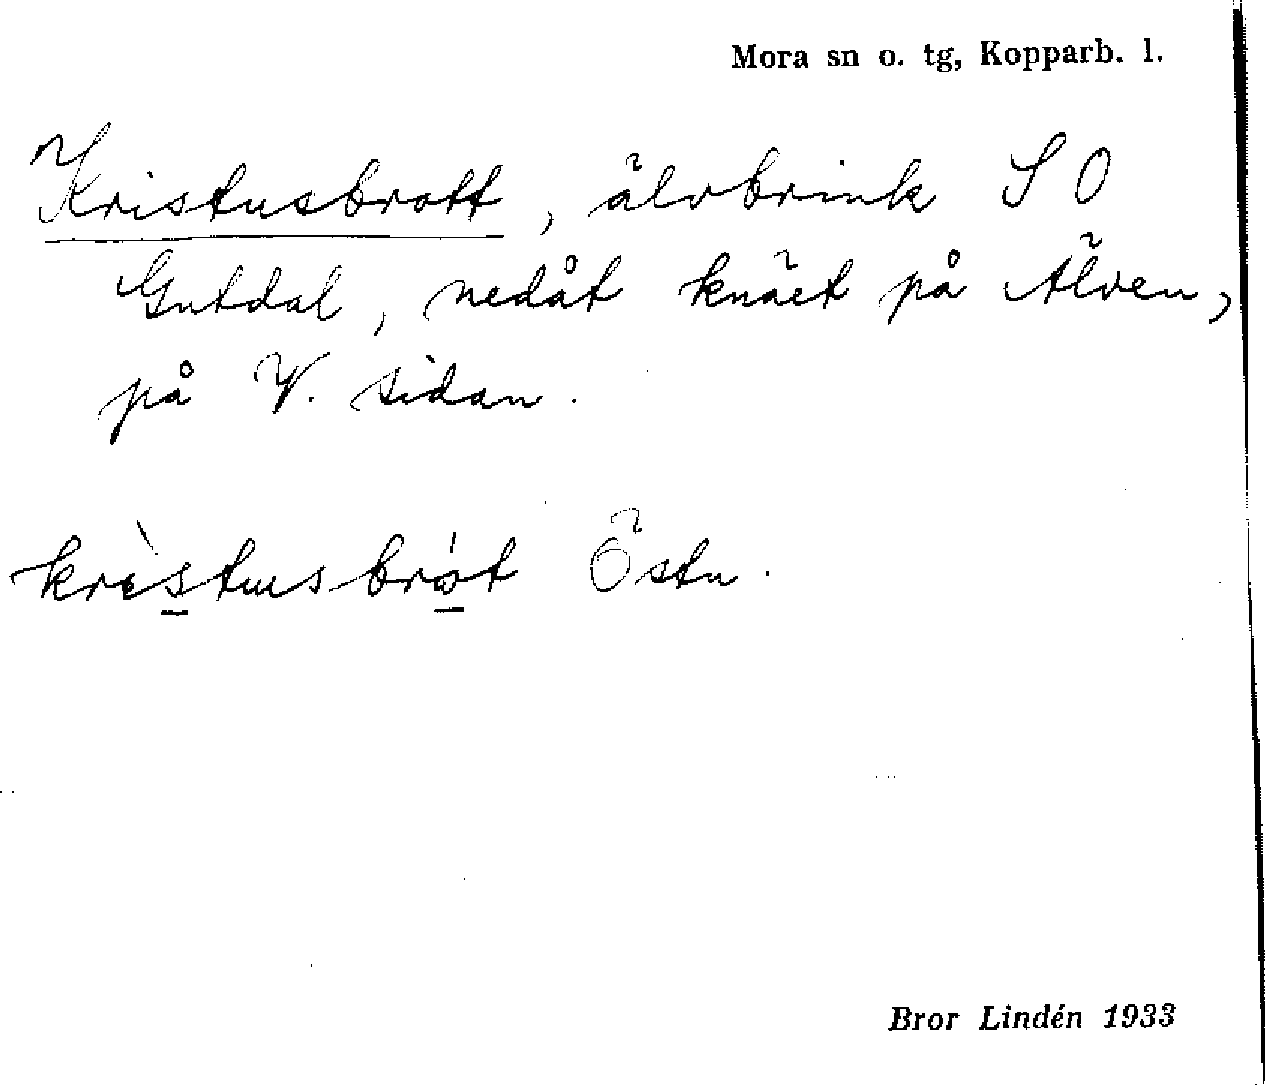 Mora sn o. tg, Kopparb. l.
Kristusbrott, älvbrink S O
Gutdal, nedåt knäet på Älven,
på V. sidan.
krìstus-brót Östn.
Bror Lindén 1933